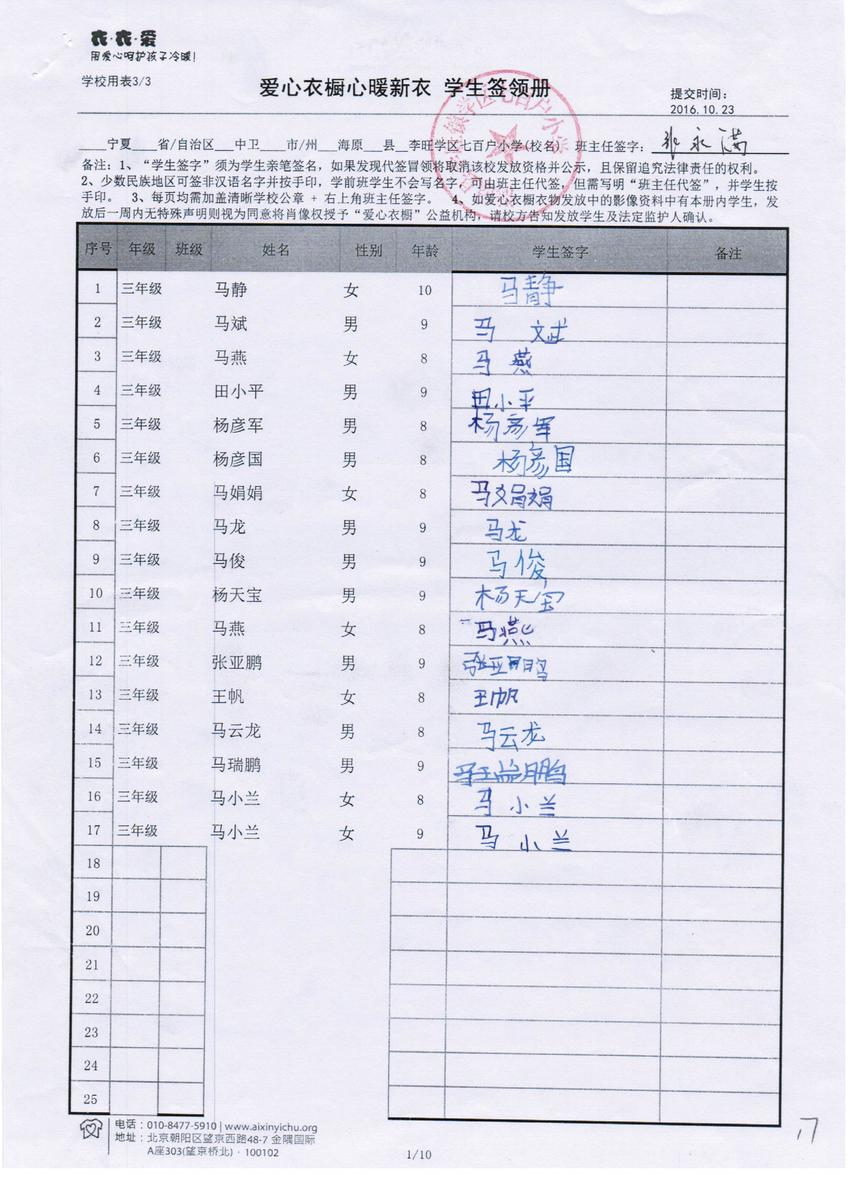 衣·衣·爱
用爱心呵护孩子冷暖!
学校用表3/3
爱心衣橱心暖新衣 学生签领册
提交时间:
2016.10.23
____宁夏___省/自治区___中卫____市/州___海原___县__李旺学区七百户小学(校名) 班主任签字: 永满
备注:1、“学生签字”须为学生亲笔签名,如果发现代签冒领将取消该校发放资格并公示,且保留追究法律责任的权利。
2、少数民族地区可签非汉语名字并按手印,学前班学生不会写名字,可由班主任代签,但需写明“班主任代签”,并学生按
手印。 3、每页均需加盖清晰学校公章 + 右上角班主任签字。 4、如爱心衣橱衣物发放中的影像资料中有本册内学生,发
放后一周内无特殊声明则视为同意将肖像权授予“爱心衣橱”公益机构,请校方告知发放学生及法定监护人确认。
学区七百户小学
序号 年级 班级 姓名 性别 年龄 学生签字 备注
1 三年级 马静 女 10 马静
2 三年级 马斌 男 9 马 斌
3 三年级 马燕 女 8 马 燕
4 三年级 田小平 男 9 田小平
5 三年级 杨彦军 男 8 杨彦军
6 三年级 杨彦国 男 8 杨彦国
7 三年级 马娟娟 女 8 马娟娟
8 三年级 马龙 男 9 马龙
9 三年级 马俊 男 9 马俊
10 三年级 杨天宝 男 9 杨天宝
11 三年级 马燕 女 8 马燕
12 三年级 张亚鹏 男 9 张亚鹏
13 三年级 王帆 女 8 王帆
14 三年级 马云龙 男 8 马云龙
15 三年级 马瑞鹏 男 9 马瑞鹏
16 三年级 马小兰 女 8 马小兰
17 三年级 马小兰 女 9 马 小兰
18
19
20
21
22
23
24
25
电话:010-8477-5910 | www.aixinyichu.org
地址:北京朝阳区望京西路48-7 金隅国际
A座303(望京桥北)· 100102
1/10
17